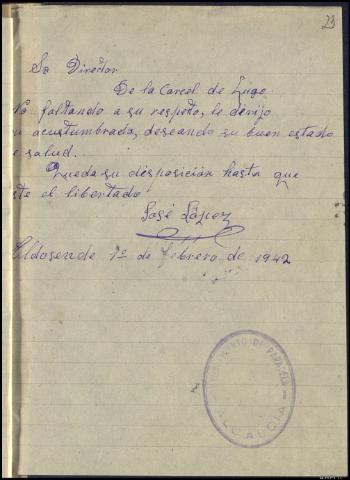 23
Sr Director
De la Carcel de Lugo
No faltando a su respeto, le dirijo
acustumbrada, deseando su buen estado
e salud.
Queda su disposición hasta que
ste el libertado
José López
Aldosende 1º de febrero de 1942
AYUNTAMIENTO DE PARADELA
ALCALDIA